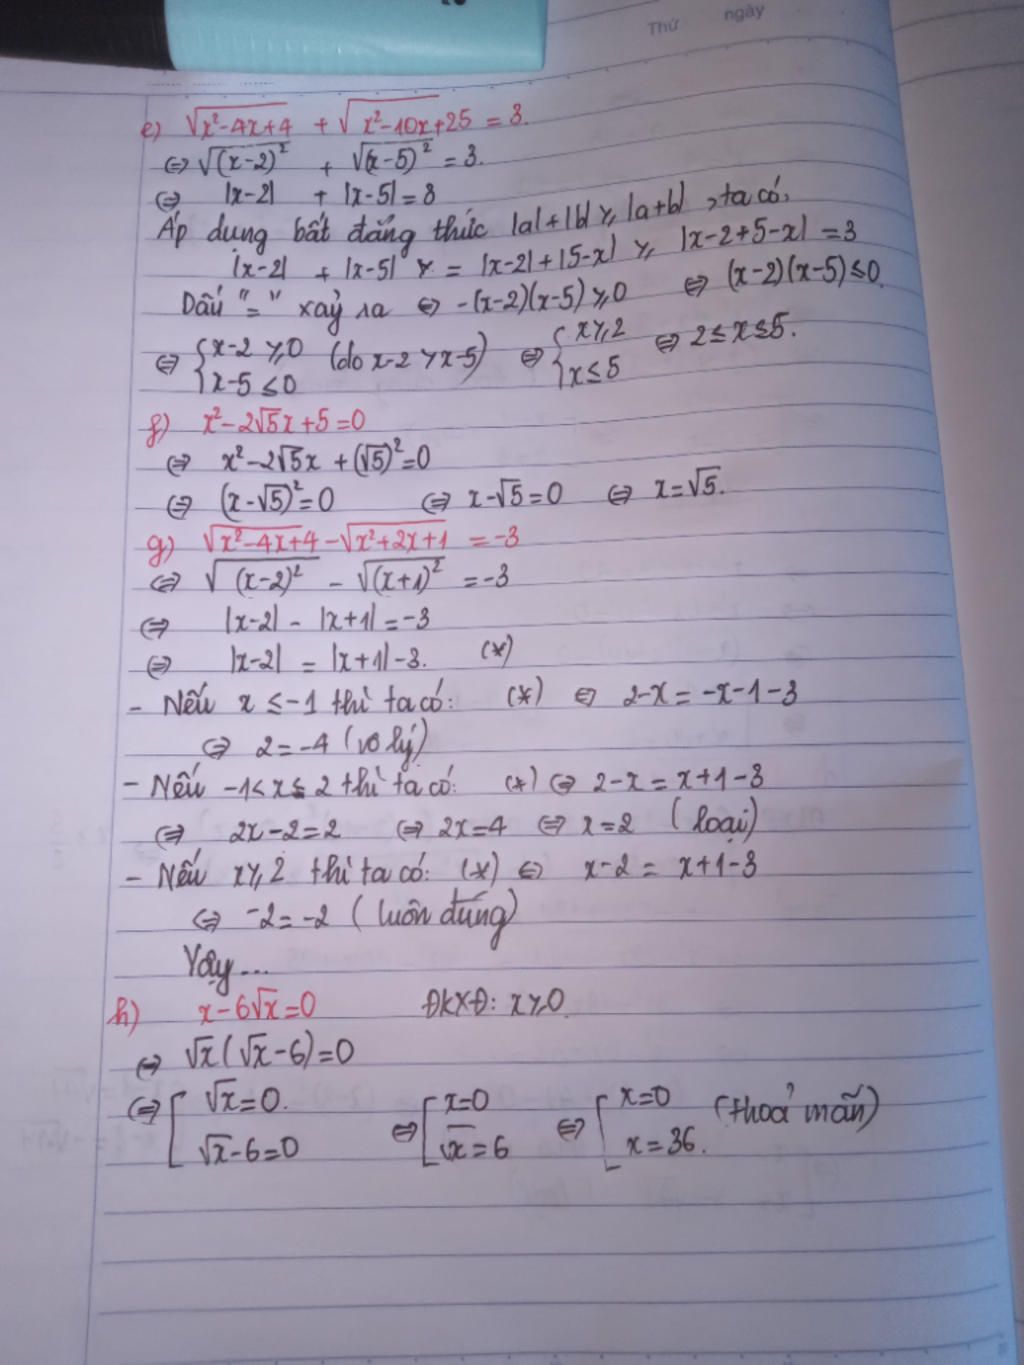 Thứ ngày
e) √(x²-4x+4) + √(x²-10x+25) = 3.
⇔ √(x-2)² + √(x-5)² = 3.
⇔ |x-2| + |x-5| = 3
Áp dụng bất đẳng thức |a|+|b| ⩾ |a+b|, ta có:
|x-2| + |x-5| = |x-2|+|5-x| ⩾ |x-2+5-x| = 3
Dấu "=" xảy ra ⇔ -(x-2)(x-5) ⩾ 0 ⇔ (x-2)(x-5) ≤ 0.
⇔ { x-2 ⩾ 0 (do x-2 > x-5) ⇔ { x ⩾ 2 ⇔ 2 ≤ x ≤ 5.
x-5 ≤ 0 x ≤ 5
f) x²-2√5x+5=0
⇔ x²-2√5x+(√5)²=0
⇔ (x-√5)²=0 ⇔ x-√5=0 ⇔ x=√5.
g) √(x²-4x+4) - √(x²+2x+1) = -3
⇔ √(x-2)² - √(x+1)² = -3
⇔ |x-2| - |x+1| = -3
⇔ |x-2| = |x+1| -3. (*)
- Nếu x ≤ -1 thì ta có: (*) ⇔ 2-x = -x-1-3
⇔ 2 = -4 (vô lý)
- Nếu -1 < x ≤ 2 thì ta có: (*) ⇔ 2-x = x+1-3
⇔ 2x-2=2 ⇔ 2x=4 ⇔ x=2 (loại)
- Nếu x ⩾ 2 thì ta có: (*) ⇔ x-2 = x+1-3
⇔ -2 = -2 (luôn đúng)
Vậy...
h) x-6√x=0 ĐKXĐ: x ⩾ 0.
⇔ √x(√x-6)=0
⇔ [ √x=0. ⇔ [ x=0 ⇔ [ x=0 (thoả mãn)
√x-6=0 √x=6 x=36.